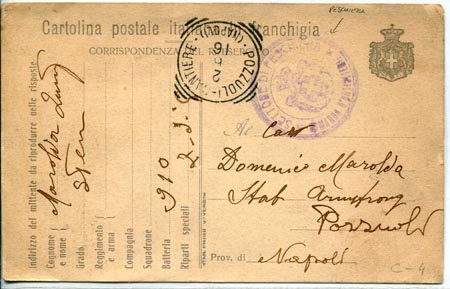 PESCHIERA
Cartolina postale Italiana in franchigia
CORRISPONDENZA DEL R. ESERCITO
POZZUOLI-CANTIERE (NAPOLI)
Indirizzo del mittente da riprodurre nelle risposte
Cognome e nome Marolda Luigi
Grado, Sten
Reggimento e arma
Compagnia
Squadrone
Batteria 910
Riparti speciali
Al Caro
Domenico Marolda
Stab Armstrong
Pozzuoli
Prov. di Napoli
C-4